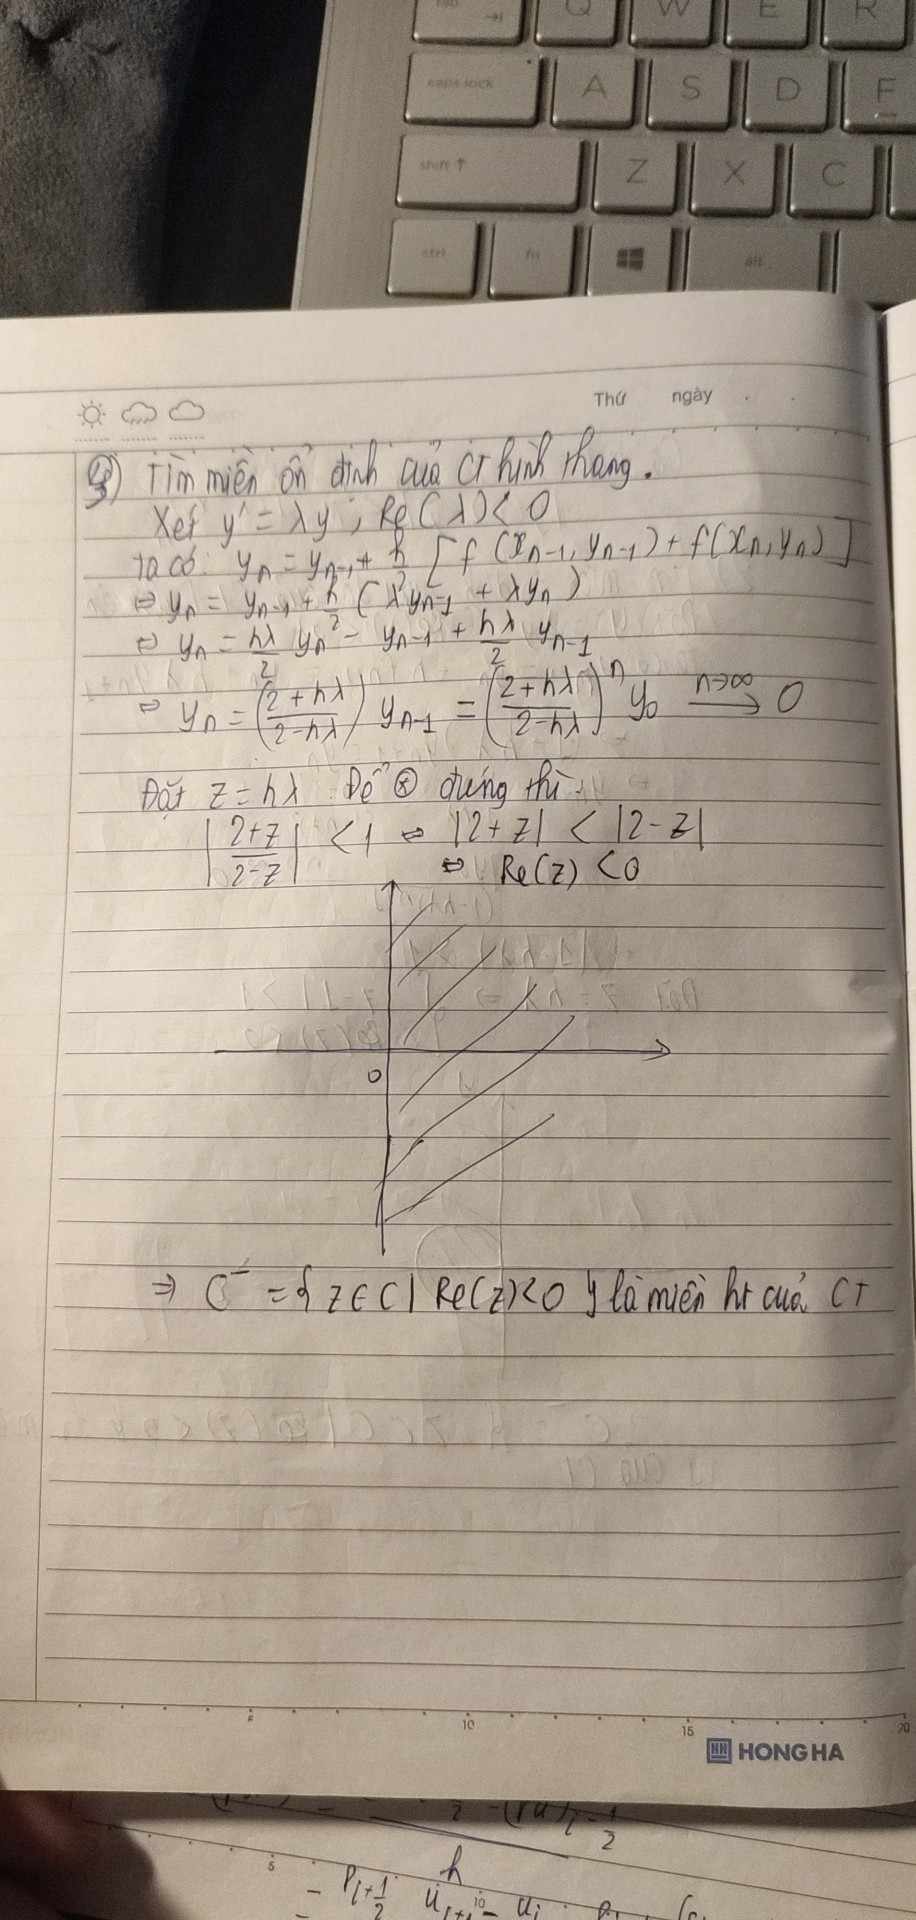 Q W E R
caps lock A S D F
shift ↑ Z X C
ctrl fn alt
Thứ ngày
Tìm miền ổn định của CT hình thang.
Xét y' = λy, Re(λ) < 0
Ta có: yₙ = yₙ₋₁ + h/2 [f(xₙ₋₁, yₙ₋₁) + f(xₙ, yₙ)]
⇔ yₙ = yₙ₋₁ + h/2 (λyₙ₋₁ + λyₙ)
⇔ yₙ = hλ/2 yₙ - yₙ₋₁ + hλ/2 yₙ₋₁
⇔ yₙ = ((2+hλ)/(2-hλ)) yₙ₋₁ = ((2+hλ)/(2-hλ))ⁿ y₀ n→∞ → 0
Đặt z = hλ. Để ⊛ đúng thì:
|(2+z)/(2-z)| < 1 ⇔ |2+z| < |2-z|
⇔ Re(z) < 0
0
⇒ C⁻ = { z ∈ C | Re(z) < 0 } là miền ht của CT
5 10 15 20
HONG HA